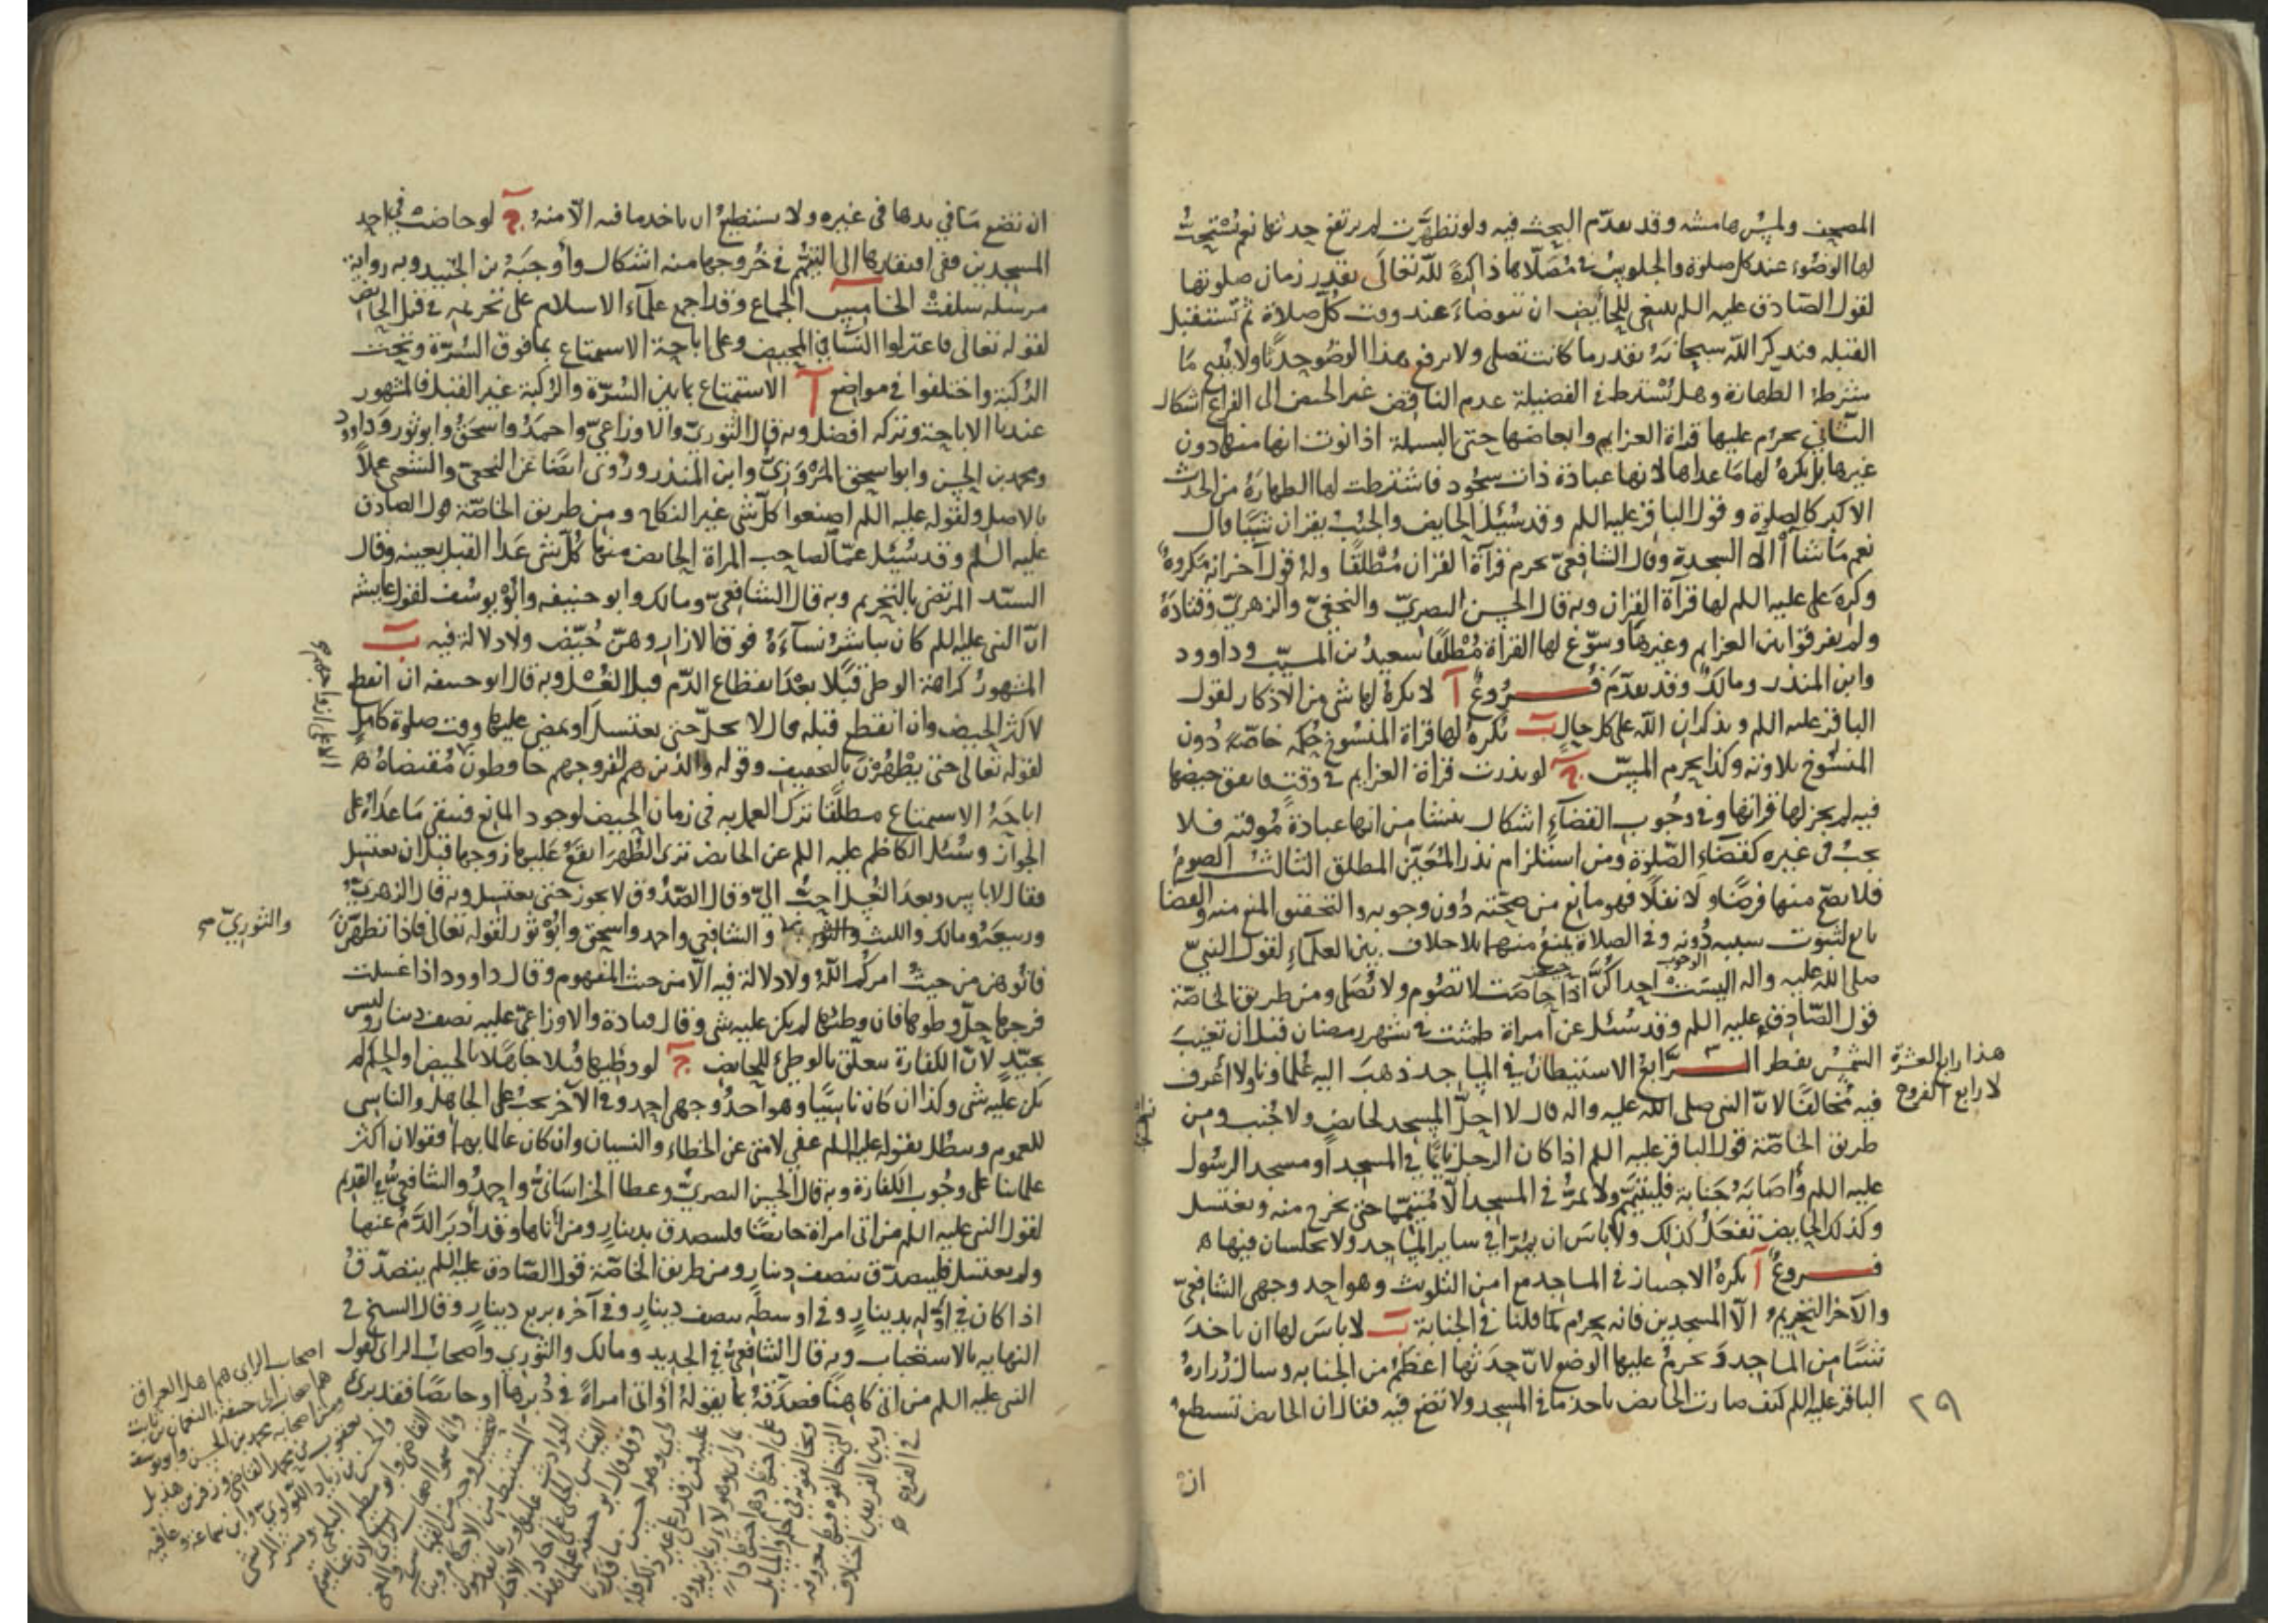 المصحف ولمس هامشه وقد تقدم البحث فيه ولو تطهرت لم يرتفع حدثها نعم يستحب
لها الوضوء عند كل صلوة والجلوس في مصلاها ذاكرة لله تعالى بقدر زمان صلوتها
لقول الصادق عليه السلم ينبغي للحائض ان تتوضأ عند وقت كل صلاة ثم تستقبل
القبله فتذكر الله سبحانه بقدر ما كانت تصلي ولا يرفع هذا الوضو حدثا ولا يبيح ما
شرطه الطهارة وهل يشترط في الفضيلة عدم الناقض غير الحيض الى الفراغ اشكال
الثاني يحرم عليها قراة العزايم وابعاضها حتى البسملة اذا نوت انها منها دون
غيرها بل يكره لها ما عداها لانها عبادة ذات سجود فاشترطت لها الطهارة من الحدث
الاكبر كالصلوة وقول الباقر عليه السلم وقد سئل الحايض والجنب يقران شيئا قال
نعم ما شاآ الا السجدة وقال الشافعي يحرم قرآة القران مطلقا وله قول آخر انه مكروه
وكره علي عليه السلم لها قرآة القران وبه قال الحسن البصري والنخعي والزهري وقتادة
ولم يفرقوا بين العزايم وغيرها وسوغ لها القراة مطلقا سعيد بن المسيب وداوود
وابن المنذر ومالك وقد تقدم فروع آ لا يكره لها شي من الاذكار لقول
الباقر عليه السلم ويذكران الله على كل حال ب يكره لها قراة المنسوخ حكمه خاصة دون
المنسوخ تلاوته وكذا يحرم المس ج لو نذرت قراة العزايم في وقت فاتفق حيضها
فيه لم يجز لها قراتها وفي وجوب القضآء اشكال ينشا من انها عبادة موقته فلا
يجب في غيره كقضآء الصلوة ومن استلزام نذر المعين المطلق الثالث الصوم
فلا يصح منها فرضا ولا نفلا فهو مانع من صحته دون وجوبه والتحقيق المنع منه والقضا
تابع لثبوت سببه دونه وفي الصلاة يمنع منهما بلا خلاف بين العلمآء لقول النبي
الوجوب
صلى الله عليه واله اليست احداكن اذا حاضت لا تصوم ولا تصلي ومن طريق الخاصة
قول الصادق عليه السلم وقد سئل عن امراة طمثت في شهر رمضان قبل ان تغيب
الشمس تفطر الرابع الاستيطان في المساجد ذهب اليه علماونا ولا اعرف
هذا رابع العشرة
لا رابع الفروع
فيه مخالفا لان النبي صلى الله عليه واله قال لا احل المسجد لحايض ولا جنب ومن
طريق الخاصة قول الباقر عليه السلم اذا كان الرجل نايما في المسجد او مسجد الرسول
عليه السلم واصابه جنابة فليتيمم ولا يمر في المسجد الا متيمما حتى يخرج منه ويغتسل
وكذلك الحايض تفعل كذلك ولا باس ان يمرا في ساير المساجد ولا يجلسان فيها
فروع آ يكره الاجتياز في المساجد مع امن التلويث وهو احد وجهي الشافعي
والآخر التحريم الا المسجدين فانه يحرم كما قلنا في الجنابة ب لا باس لها ان تاخذ
شيئا من المساجد ويحرم عليها الوضع لان حدثها اعظم من الجنابه وسال زرارة
الباقر عليه السلم كيف صارت الحايض تاخذ ما في المسجد ولا تضع فيه فقال ان الحايض تستطيع
٢٩
ان
ان تضع ما في يدها في غيره ولا تستطيع ان تاخذ ما فيه الا منه ج لو حاضت في احد
المسجدين ففي افتقارها الى التيمم في خروجها منه اشكال واوجبه بن الجنيد وبه رواية
مرسله سلفت الخامس الجماع وقد اجمع علمآء الاسلام على تحريمه في قبل الحائض
لقوله تعالى فاعتزلوا النسا في المحيض وعلى اباحة الاستمتاع بما فوق السرة وتحت
الركبة واختلفوا في مواضع آ الاستمتاع بما بين السرة والركبة غير القبل فالمشهور
عندنا الاباحة وتركه افضل وبه قال الثوري والاوزاعي واحمد واسحق وابو ثور وداوود
ومحمد بن الحسن وابو اسحق المروزي وابن المنذر وروي ايضا عن النخعي والشعبي عملا
بالاصل ولقوله عليه السلم اصنعوا كل شي غير النكاح ومن طريق الخاصة قول الصادق
عليه السلم وقد سئل عما لصاحب المراة الحايض منها كل شي عدا القبل بعينه وقال
السيد المرتضى بالتحريم وبه قال الشافعي ومالك وابو حنيفه وابو يوسف لقول عايشه
ان النبي عليه السلم كان يباشر نسآءه فوق الازار وهن حيض ولا دلالة فيه ب
المشهور كراهة الوطي قبلا بعد انقطاع الدم قبل الغسل وبه قال ابو حنيفه ان انقطع
لاكثر الحيض وان انقطع قبله قال لا يحل حتى يغتسل او يمضي عليها وقت صلوة كامل
لقوله تعالى حتى يطهرن بالتخفيف وقوله والذين هم لفروجهم حافظون مقتضاه
اباحة الاستمتاع مطلقا ترك العمل به في زمان الحيض لوجود المانع فيبقى ما عداه على
الجواز وسئل الكاظم عليه السلم عن الحايض ترى الطهر ايقع عليها زوجها قبل ان تغتسل
فقال لا باس وبعد الغسل احب الي وقال الصدوق لا يجوز حتى تغتسل وبه قال الزهري
وربيعة ومالك والليث والشافعي واحمد واسحق وابو ثور لقوله تعالى فاذا تطهرن
والثوري
فاتوهن من حيث امركم الله ولا دلالة فيه الا من حيث المفهوم وقال داوود اذا غسلت
فرجها حل وطوها فان وطئها لم يكن عليه شي وقال قتادة والاوزاعي عليه نصف دينار وليس
بجيد لان الكفارة تتعلق بالوطئ للحايض ج لو وطيها قبلا جاهلا بالحيض او الحكم لم
يكن عليه شي وكذا ان كان ناسيا وهو احد وجهي احمد وفي الآخر يجب على الجاهل والناسي
للعموم ويبطل بقوله عليه السلم عفي لامتي عن الخطاء والنسيان وان كان عالما بهما فقولان اكثر
علماينا على وجوب الكفارة وبه قال الحسن البصري وعطا الخراساني واحمد والشافعي في القديم
لقول النبي عليه السلم من اتى امراة حائضا فليتصدق بدينار ومن اتاها وقد ادبر الدم عنها
ولم يغتسل فليتصدق بنصف دينار ومن طريق الخاصة قول الصادق عليه السلم يتصدق
اذا كان في اوله بدينار وفي اوسطه بنصف دينار وفي آخره بربع دينار وقال الشيخ في
النهايه بالاستحباب وبه قال الشافعي في الجديد ومالك والثوري واصحاب الراي لقول
النبي عليه السلم من اتى كاهنا فصدقه بما يقوله او اتى امراة في دبرها او حايضا فقد برئ
اصحاب الراي هم اهل العراق
هم اصحاب ابي حنيفة النعمان بن ثابت